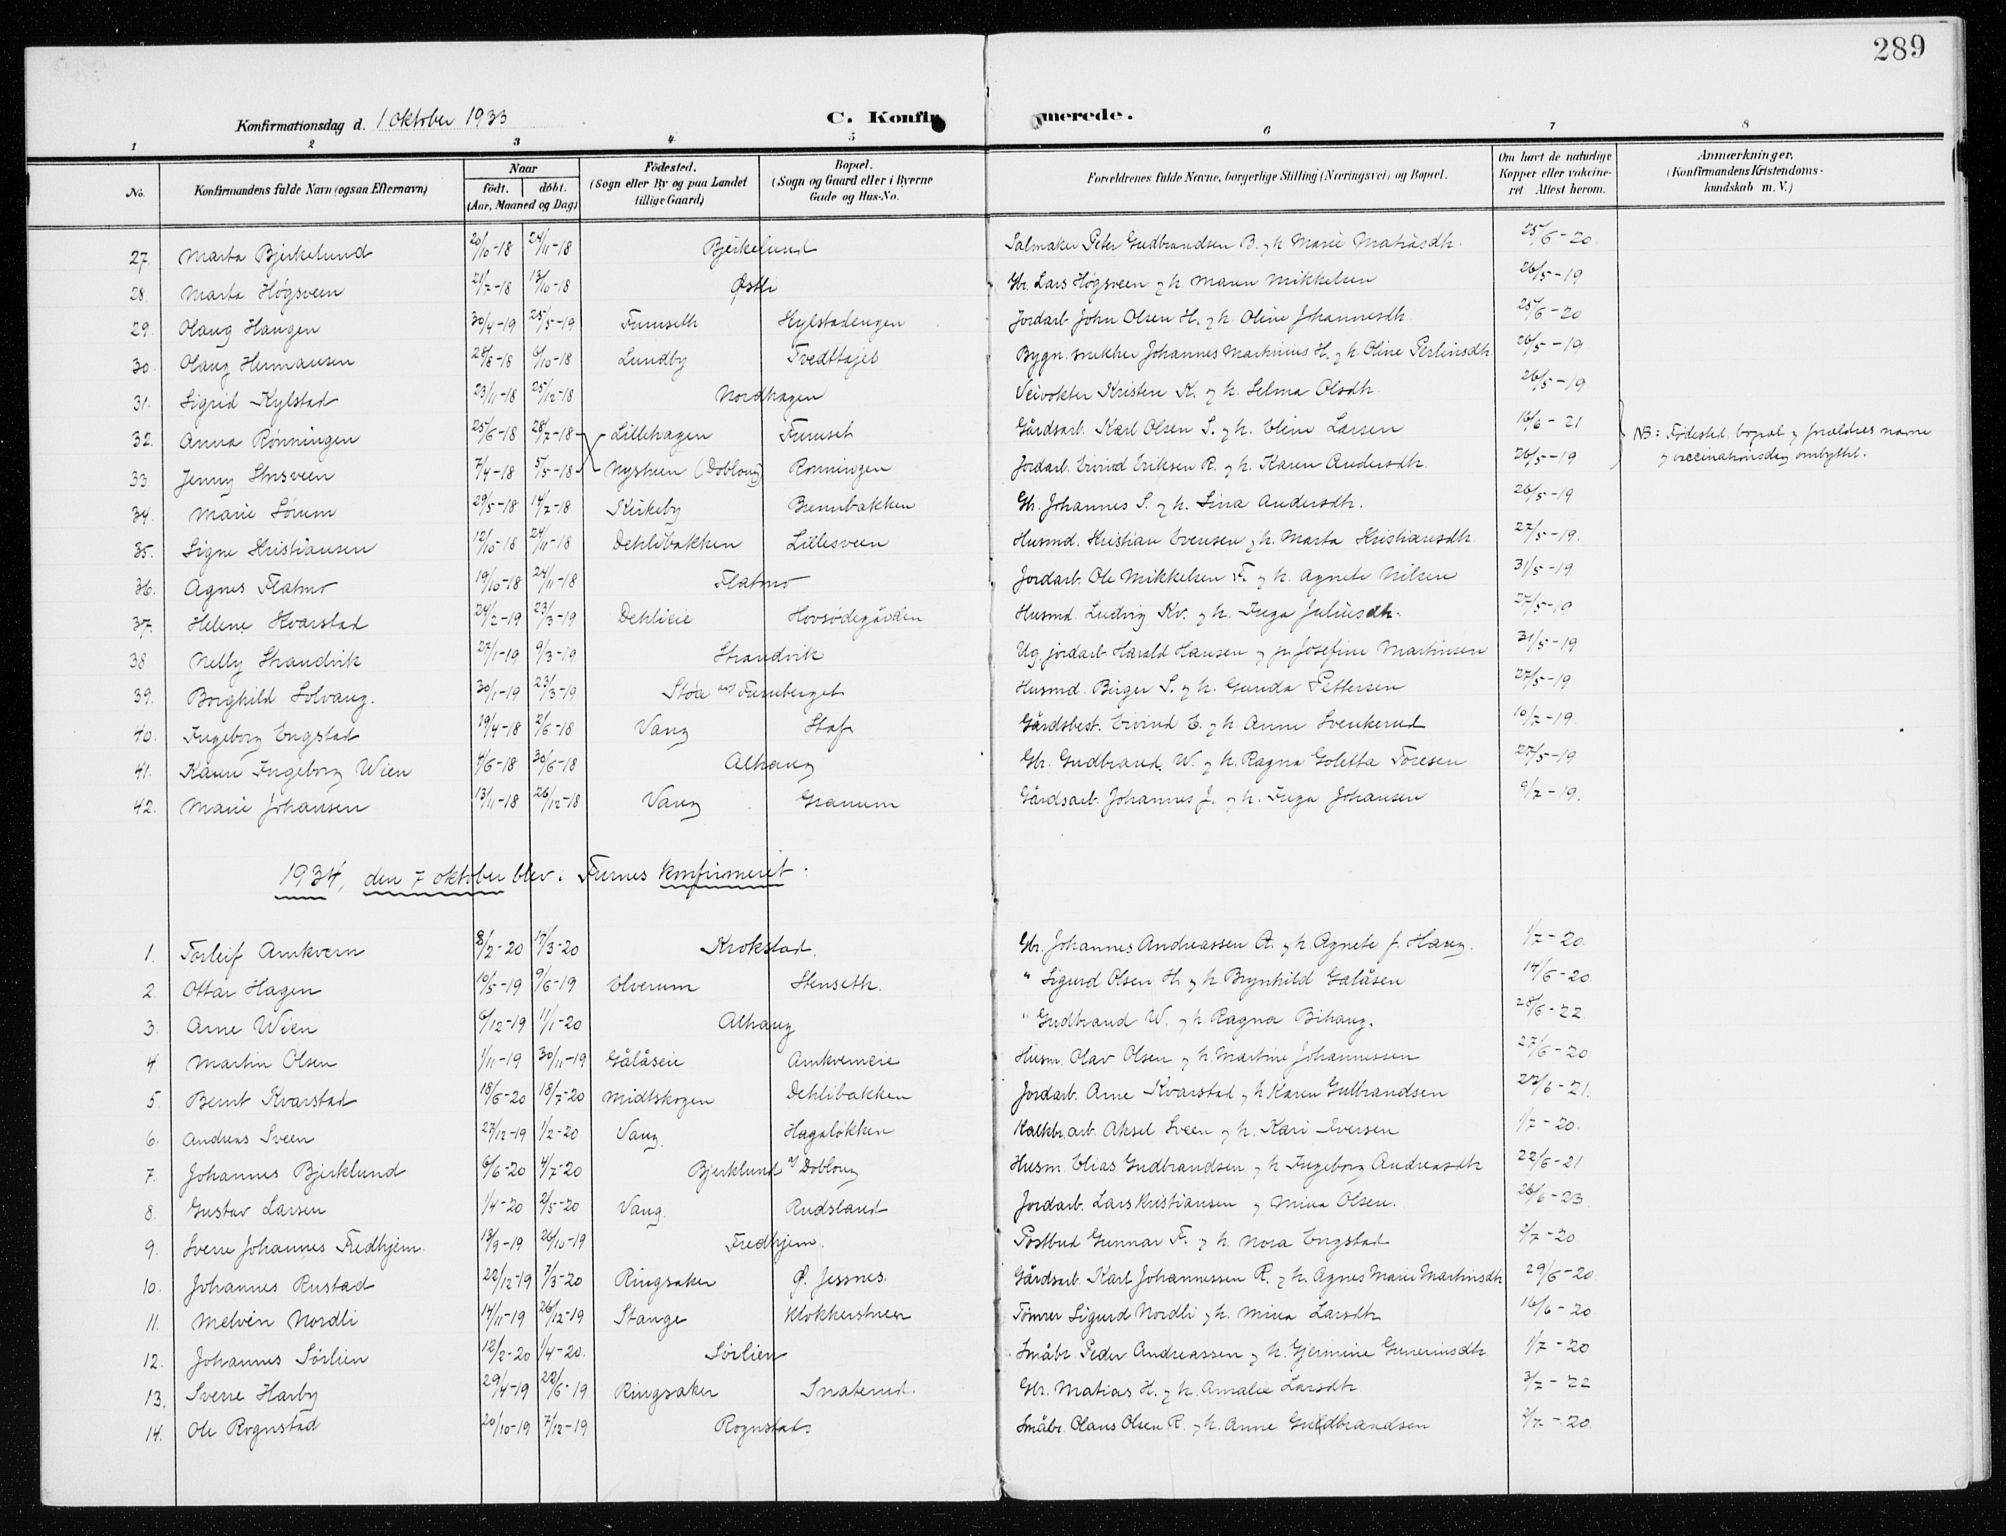 289
Konfirmationsdag d. 1 oktober 1933 C. Konfirmerede.
1 2 3 4 5 6 7 8
No. Konfirmandens fulde Navn (ogsaa Efternavn) Naar født. døbt. (Aar, Maaned og Dag) Fødested. (Sogn eller By og paa Landet tillige Gaard) Bopæl. (Sogn og Gaard eller i Byerne Gade og Hus-No. Forældrenes fulde Navne, borgerlige Stilling (Næringsvei) og Bopæl. Om havt de naturlige Kopper eller vakcineret Attest herom. Anmærkninger. (Konfirmandens Kristendomskundskab m. V.)
27. Marta Bjerkelund 20/10-18 24/11-18 Bjerkelund Salmaker Peter Gudbrandsen B. og h. Marie Matiasdtr. 25/6-20
28. Marta Høgsveen 21/7-18 13/10-18 Østli Gbr. Lars Høgsveen og h. Maren Mikkelsen 26/5-19
29. Olaug Haugen 30/4-19 25/5-19 Furuseth Hylstadengen Jordarb. John Olsen H. og h. Oline Johannesdtr. 25/6-20
30. Olaug Hermansen 28/8-18 6/10-18 Lundby Tvedthajet Bygn. snekker Johannes Martinius H. og h. Oline Perlinsdtr. 26/5-19
31. Sigrid Kylstad 23/11-18 25/12-18 Nordhagen Veivokter Kristen K. og h. Selma Olsdtr. 26/5-19
32. Anna Rønningen 25/6-18 28/7-18 Lillehagen Furuset Gårdsarb. Karl Olsen S. og h. Eline Larsen 16/6-21 NB: Fødested, bopæl og foreldres navne
33. Jenny Storsveen 7/4-18 5/5-18 Nysteen (Dobloug) Rønningen Jordarb. Eivind Eriksen R. og h. Karen Andersdtr. 26/5-19 og vaccinationsdag ombyttet.
34. Marie Sørum 29/5-18 14/7-18 Kirkeby Brennbakken Gb. Johannes S. og h. Lina Andersdtr. 26/5-19
35. Signe Kristiansen 12/10-18 24/11-18 Dehlibakken Lillesveen Husmd. Kristian Evensen og h. Marta Kristiansdtr. 27/5-19.
36. Agnes Flatmo 19/10-18 24/11-18 Flatmo Jordarb. Ole Mikkelsen F. og h. Agnete Nilsen 31/5-19
37. Helene Kvarstad 24/2-19 23/3-19 Dehlieie Hovsødegården Husmd. Ludvig Kv. og h. Inga Juliusdtr. 27/5-19
38 Nelly Strandvik 27/1-19 9/3-19 Strandvik Ug. jordarb. Harald Hansen og p. Josefine Martinsen 31/5-19
39. Borghild Solvang. 30/1-19 23/3-19 Støa u/ Furuberget Husmd. Birger S. og h. Gunda Pettersen 27/5-19
40. Ingeborg Engstad 19/4-18 2/6-18 Vang Staf Gårdsbest. Eivind E. og h. Anne Svenkerud 10/7-19.
41. Karen Ingeborg Wien 4/6-18 30/6-18 Alhaug Gbr. Gudbrand W. og h. Ragna Goletta Toresen 27/5-19
42. Marie Johansen 13/11-18 26/12-18 Vang Granum Gårdsarb. Johannes J. og h. Inga Johansen 9/7-19.
1934, den 7 oktober blev i Furnes konfirmeret:
1. Torleif Amkvern 8/2-20 17/3-20 Krokstad. Gbr. Johannes Andreassen A. og h. Agnete f. Haug. 1/7-20.
2. Ottar Hagen 10/5-19 9/6-19 Elverum Stenseth. " Sigurd Olsen H. og h. Brynhild Galåsen 14/6-20.
3. Arne Wien 6/12-19 11/1-20 Alhaug " Gudbrand W. og h. Ragna Bihaug. 28/6-22
4. Martin Olsen 1/11-19 30/11-19 Gålåseie Amkverneie Husm. Olav Olsen og h. Martine Johannessen 27/6-20
5. Bernt Kvarstad 18/6-20 18/7-20 Midtskogen Dehlibakken Jordarb. Arne Kvarstad og h. Karen Gulbrandsen 22/6-21.
6. Andreas Sveen 27/12-19 1/2-20 Vang. Hagaløkken Kalkbr.arb. Aksel Sveen og h. Kari Iversen 1/7-20.
7. Johannes Bjerklund 6/6-20 4/7-20 Bjerklund u/ Dobloug Husm. Elias Gudbrandsen og h. Ingeborg Andreasdtr. 22/6-21
8. Gustav Larsen 1/4-20 2/5-20 Vang. Rudsland Jordarb. Lars Kristiansen og Mina Olsen. 26/6-23
9. Sverre Johannes Fredhjem. 13/9-19 26/10-19 Fredhjem. Postbud Gunnar F. og h. Nora Engstad 2/7-20
10. Johannes Rustad 22/12-19 7/3-20 Ringsaker Ø. Jessnes. Gårdsarb. Karl Johannessen R. og h. Agnes Marie Martinsdtr. 29/6-20.
11. Melvin Nordli 14/11-19 26/12-19 Stange Klokkerstuen Tømrer Sigurd Nordli og h. Mina Larsdtr. 16/6-20
12. Johannes Sørlien 12/2-20 1/4-20. Sørlien Småbr. Peder Andreassen og h. Gjermine Gunerinsdtr. 1/7-20
13. Sverre Harby 29/4-19 22/6-19 Ringsaker Snaterud. Gbr. Matias H. og h. Amalie Larsdtr. 3/7-22
14. Ole Rognstad 20/10-19 7/12-19 Rognstad. Småbr. Olaus Olsen R. og h. Anne Guldbrandsen 2/7-20.